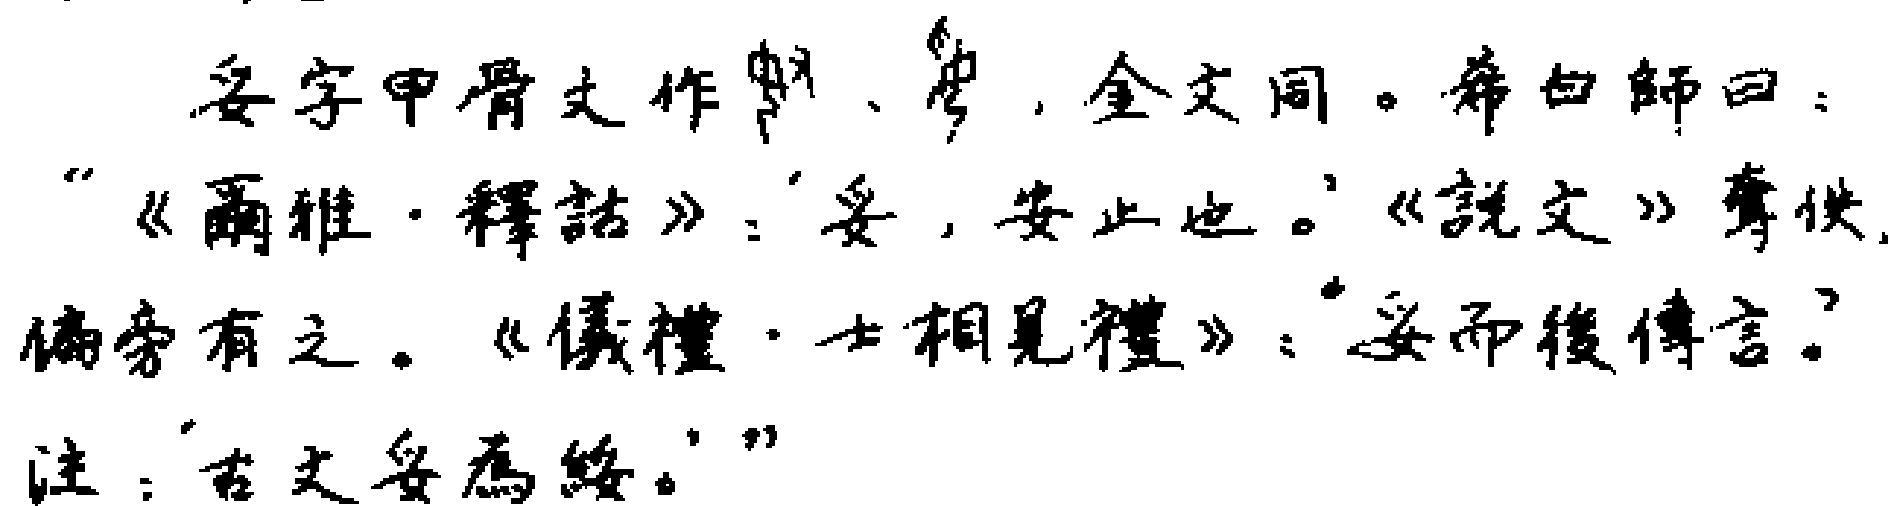 妥字甲骨文作、，金文同。希白師曰：
“《爾雅·釋詁》：‘妥，安止也。’《説文》奪佚，
偏旁有之。《儀禮·士相見禮》：‘妥而後傳言。’
注：‘古文妥為綏。’”